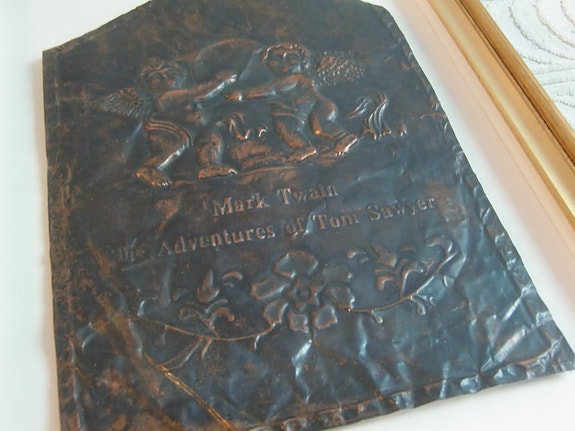 Mark Twain
The Adventures of Tom Sawyer